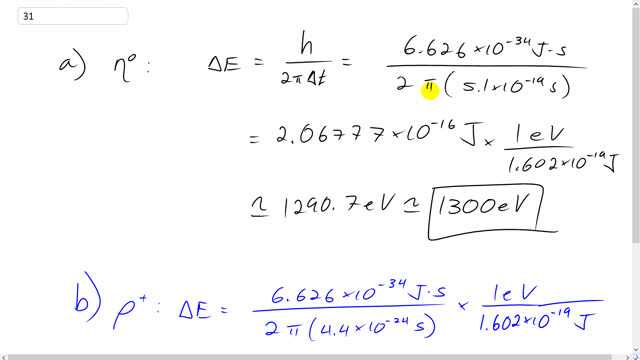 31
a) η⁰: ΔE = h / 2πΔt = 6.626×10⁻³⁴ J·s / 2π(5.1×10⁻¹⁹ s)
= 2.06777×10⁻¹⁶ J × 1eV / 1.602×10⁻¹⁹ J
≃ 1290.7eV ≃ 1300eV
b) ρ⁺: ΔE = 6.626×10⁻³⁴ J·s / 2π(4.4×10⁻²⁴ s) × 1eV / 1.602×10⁻¹⁹ J